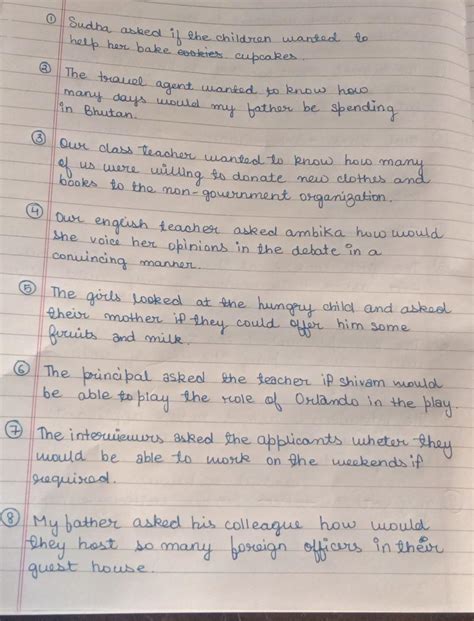 ① Sudha asked if the children wanted to
help her bake cookies. cupcakes.
② The travel agent wanted to know how
many days would my father be spending
in Bhutan.
③ Our class teacher wanted to know how many
of us were willing to donate new clothes and
books to the non-government organization.
④ Our english teacher asked ambika how would
she voice her opinions in the debate in a
convincing manner.
⑤ The girls looked at the hungry child and asked
their mother if they could offer him some
fruits and milk.
⑥ The principal asked the teacher if shivam would
be able to play the role of Orlando in the play.
⑦ The interviewurs asked the applicants wheter they
would be able to work on the weekends if
required.
⑧ My father asked his colleague how would
they host so many foreign officers in their
guest house.